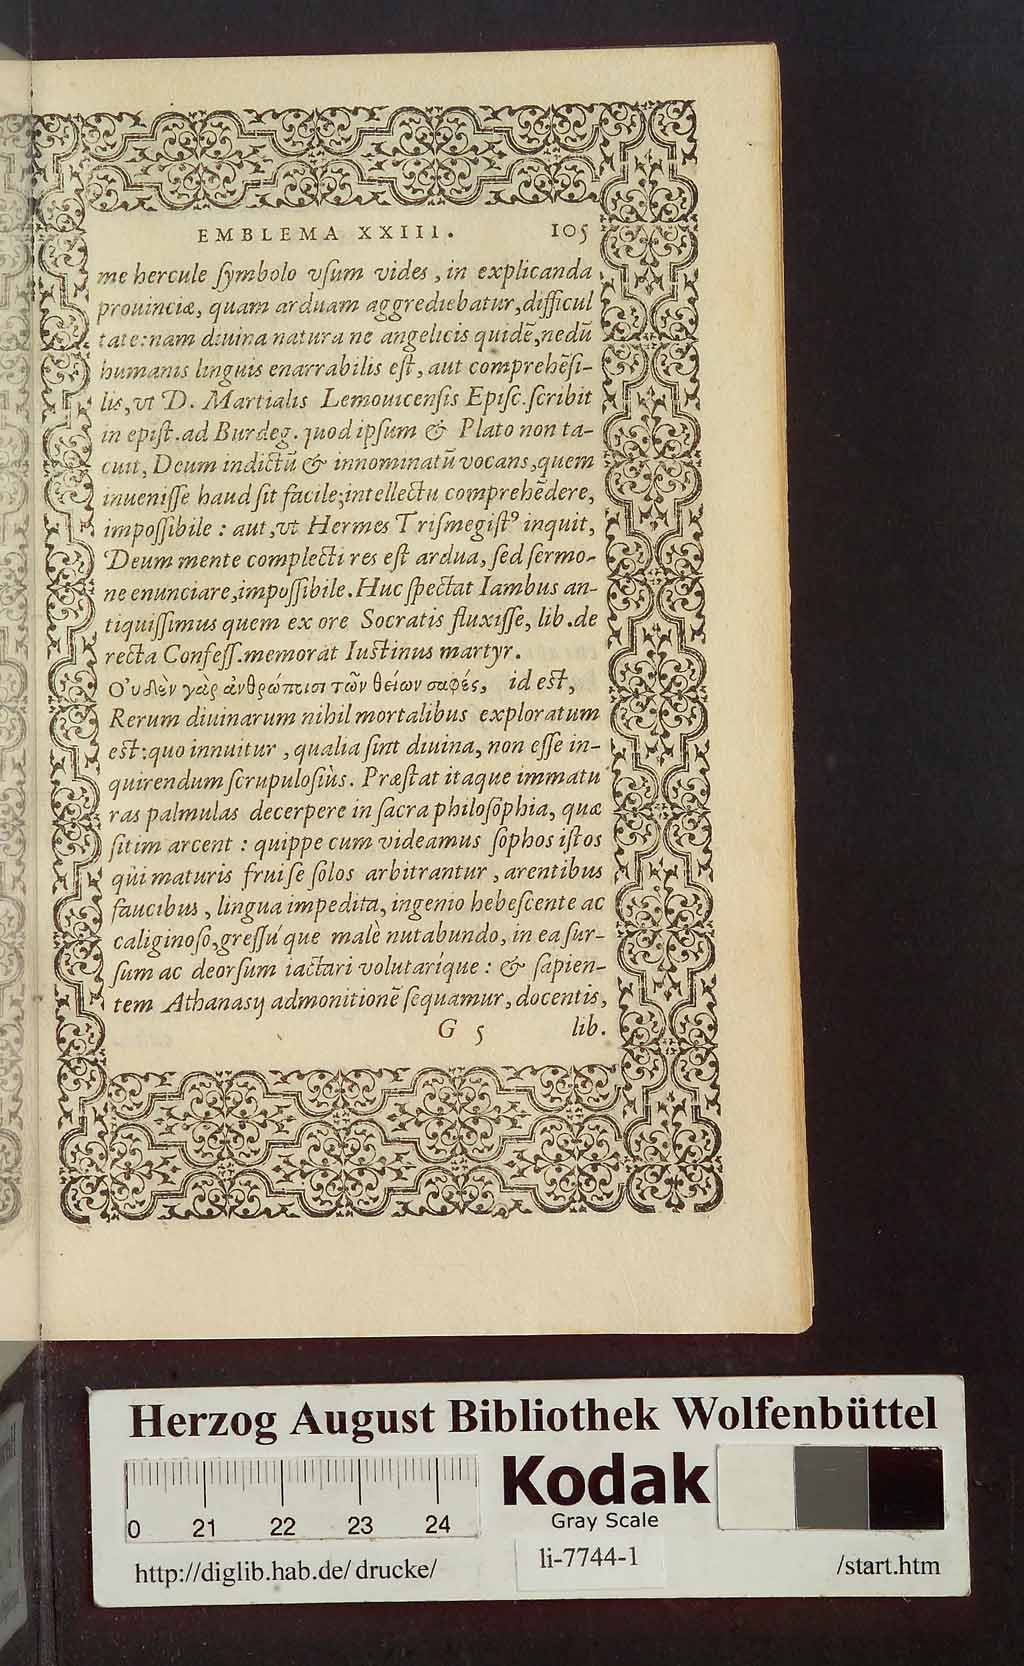 EMBLEMA XXIII. 105
me hercule ſymbolo vſum vides, in explicanda
prouinciæ, quam arduam aggrediebatur, difficul
tate: nam diuina natura ne angelicis quidē, nedū
humanis linguis enarrabilis eſt, aut comprehēſi-
lis, vt D. Martialis Lemouicenſis Epiſc. ſcribit
in epiſt. ad Burdeg. quod ipſum & Plato non ta-
cuit, Deum indictū & innominatū vocans, quem
inueniſſe haud ſit facile; intellectu comprehēdere,
impoſſibile: aut, vt Hermes Triſmegiſtꝰ inquit,
Deum mente complecti res eſt ardua, ſed ſermo-
ne enunciare, impoſſibile. Huc ſpectat Iambus an-
tiquiſſimus quem ex ore Socratis fluxiſſe, lib. de
recta Confeſſ. memorat Iuſtinus martyr.
Οὐδὲν γὰρ ἀνθρώποισι τῶν θείων σαφές, id eſt,
Rerum diuinarum nihil mortalibus exploratum
eſt: quo innuitur, qualia ſint diuina, non eſſe in-
quirendum ſcrupuloſiùs. Præſtat itaque immatu
ras palmulas decerpere in ſacra philoſophia, quæ
ſitim arcent: quippe cum videamus ſophos iſtos
qui maturis frui ſe ſolos arbitrantur, arentibus
faucibus, lingua impedita, ingenio hebeſcente ac
caliginoſo, greſſúque malè nutabundo, in ea ſur-
ſum ac deorſum iactari volutaríque: & ſapien-
tem Athanasij admonitionē ſequamur, docentis,
G 5 lib.
Herzog August Bibliothek Wolfenbüttel
0 21 22 23 24
Kodak
Gray Scale
http://diglib.hab.de/drucke/ li-7744-1 /start.htm